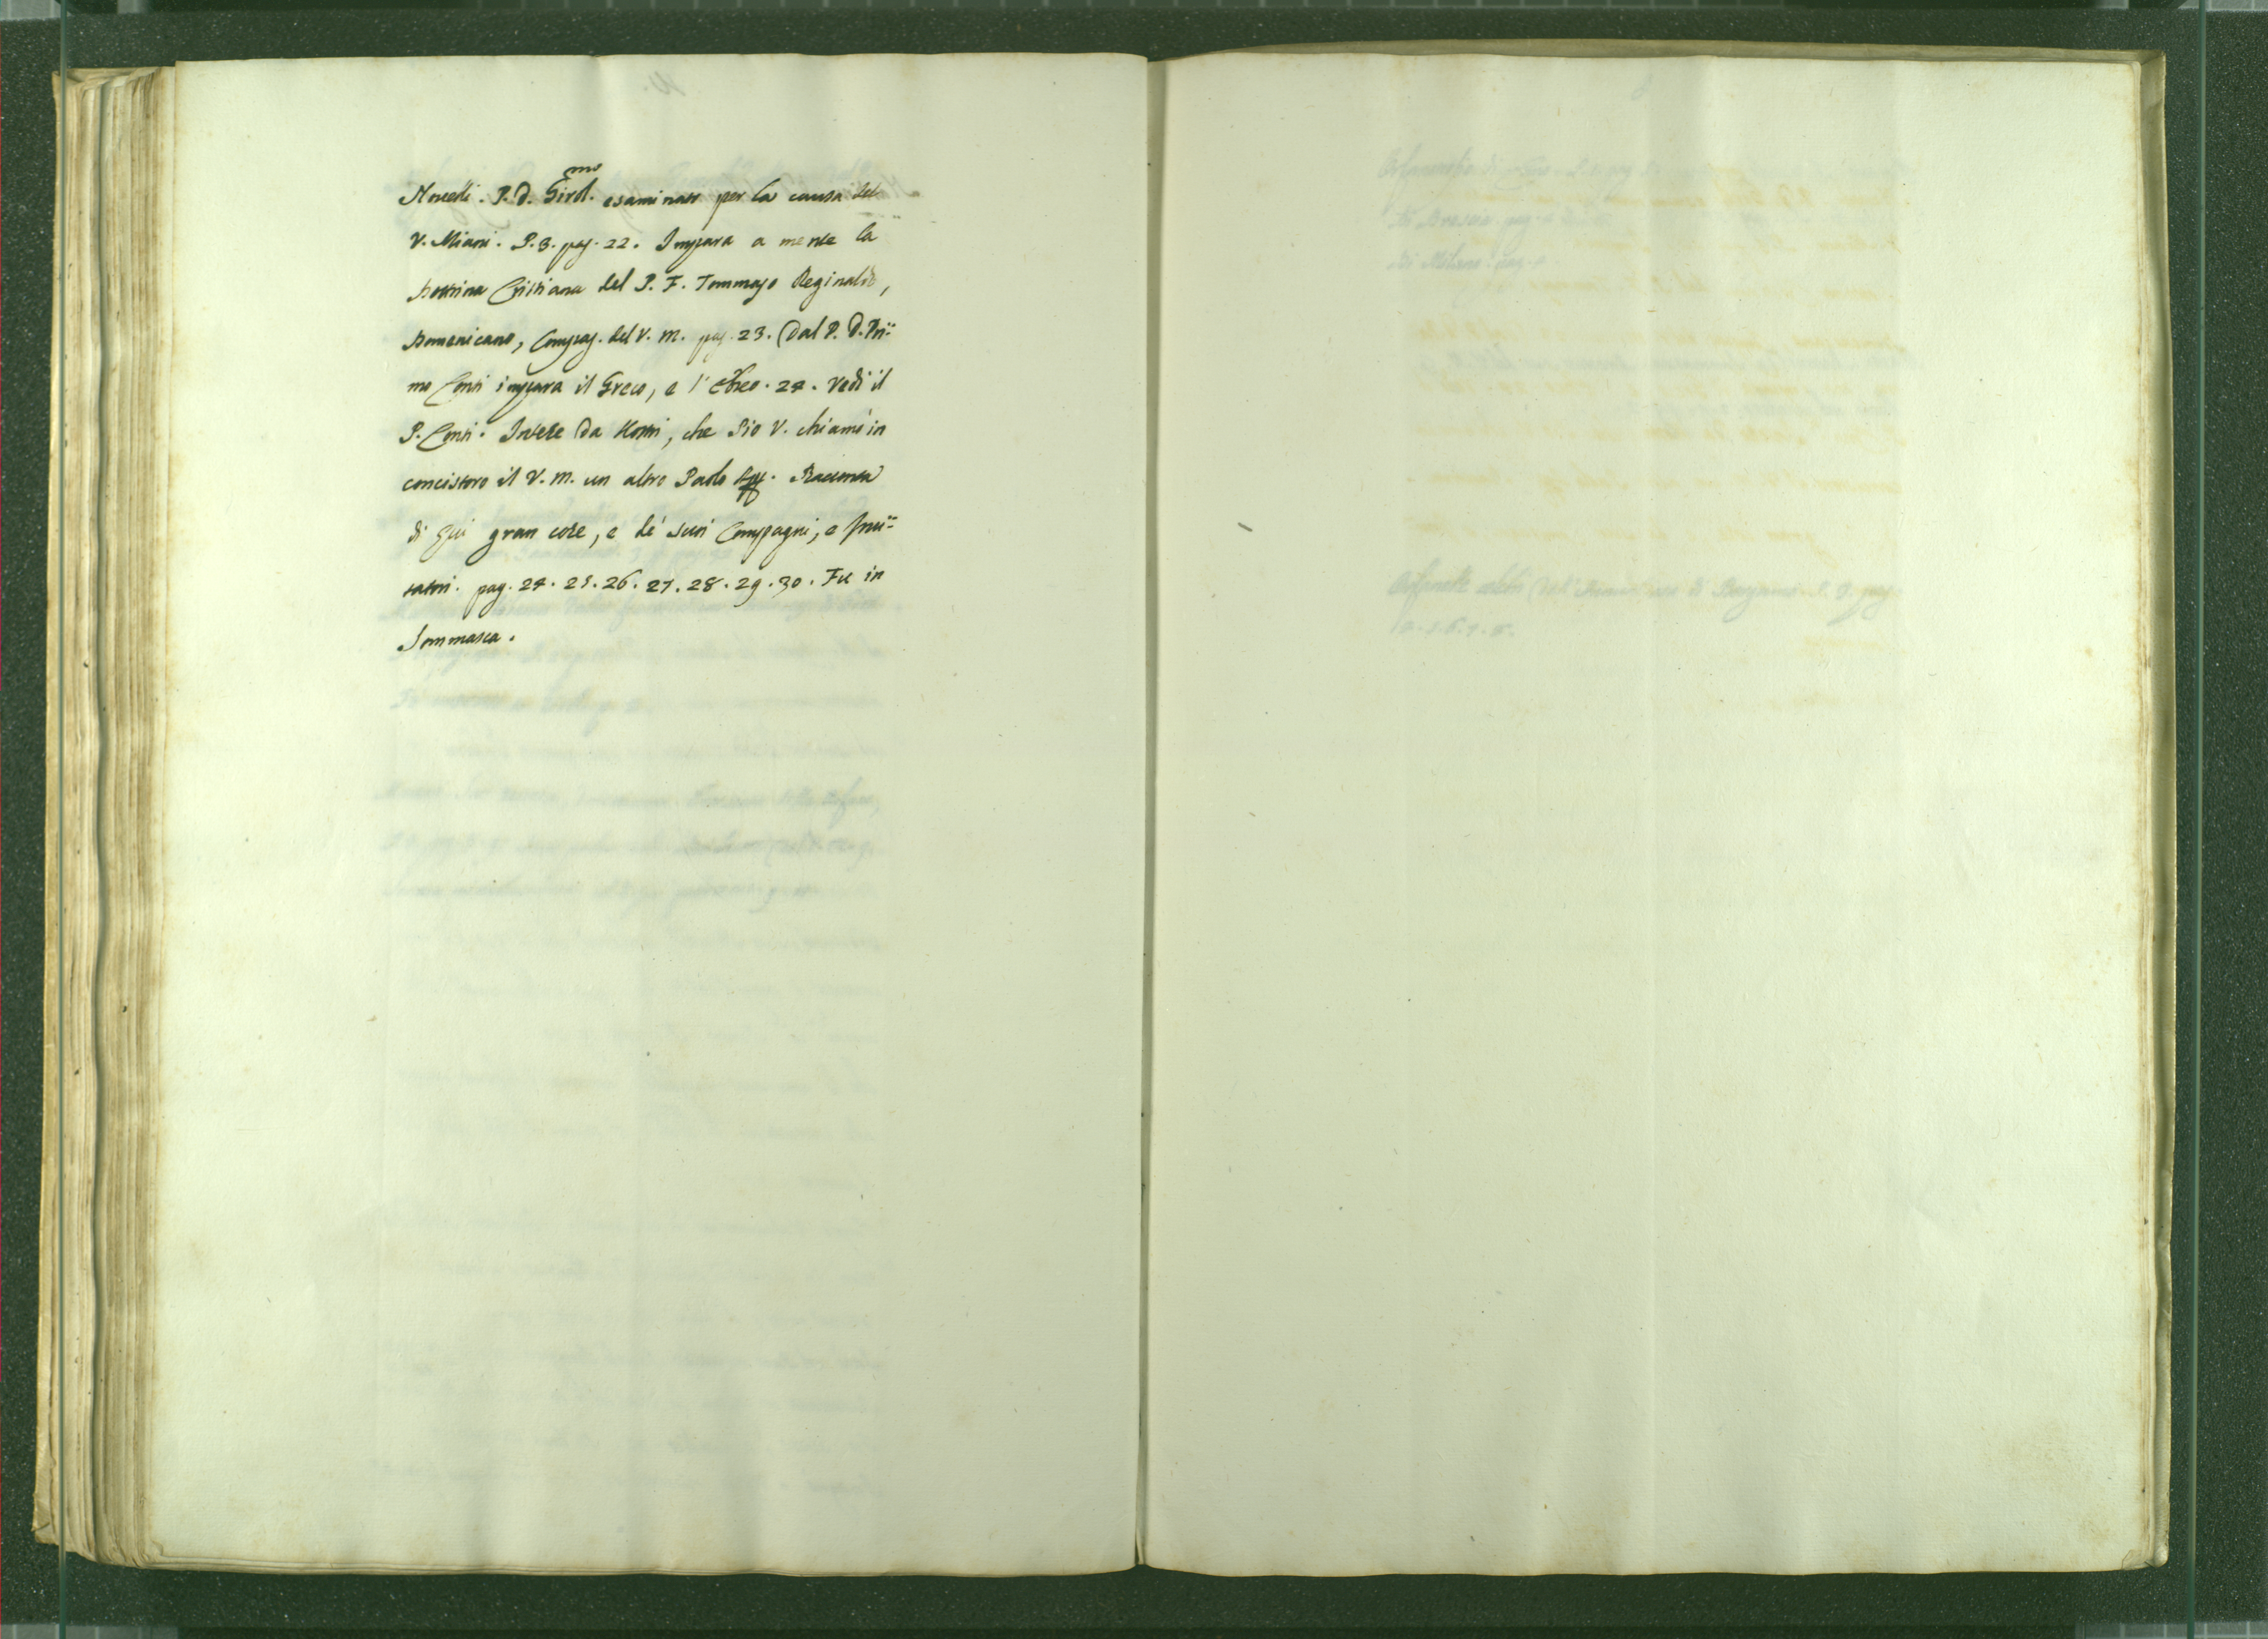 Novelli. P. D. Girol.mo esaminato per la causa del
V. Miani. P. 3. pag. 22. Impara a mente la
Dottrina Cristiana del P. F. Tommaso Reginaldo,
Domenicano, Compag. del V. M. pag. 23. (Dal P. D. Pri=
mo Conti impara il Greco, e l'Ebreo. 24. Vedi il
P. Conti. Intese da Nostri, che Pio V. chiamò in
concistoro il V. M. un altro Paolo App. Racconta
di qui gran cose, e de' suoi Compagni, e
pag. 24. 25. 26. 27. 28. 29. 30. Fu in
Sommasca.